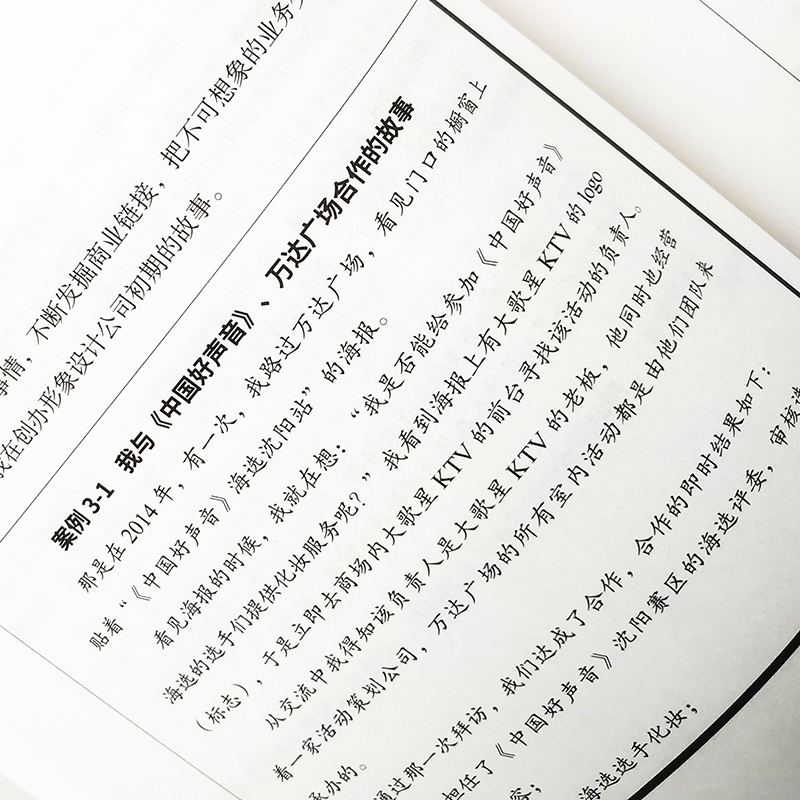 事情，不断发掘商业链接，把不可想象的业务
我在创办形象设计公司初期的故事。
案例 3-1 我与《中国好声音》、万达广场合作的故事
那是在 2014 年，有一次，我路过万达广场，看见门口的橱窗上
贴着“《中国好声音》海选沈阳站”的海报。
看见海报的时候，我就在想：“我是否能给参加《中国好声音》
海选的选手们提供化妆服务呢？”我看到海报上有大歌星 KTV 的 logo
（标志），于是立即去商场内大歌星 KTV 的前台寻找该活动的负责人。
从交流中我得知该负责人是大歌星 KTV 的老板，他同时也经营
着一家活动策划公司，万达广场的所有室内活动都是由他们团队来
承办的。
通过那一次拜访，我们达成了合作，合作的即时结果如下：
担任了《中国好声音》沈阳赛区的海选评委，审核选
容；
海选选手化妆；